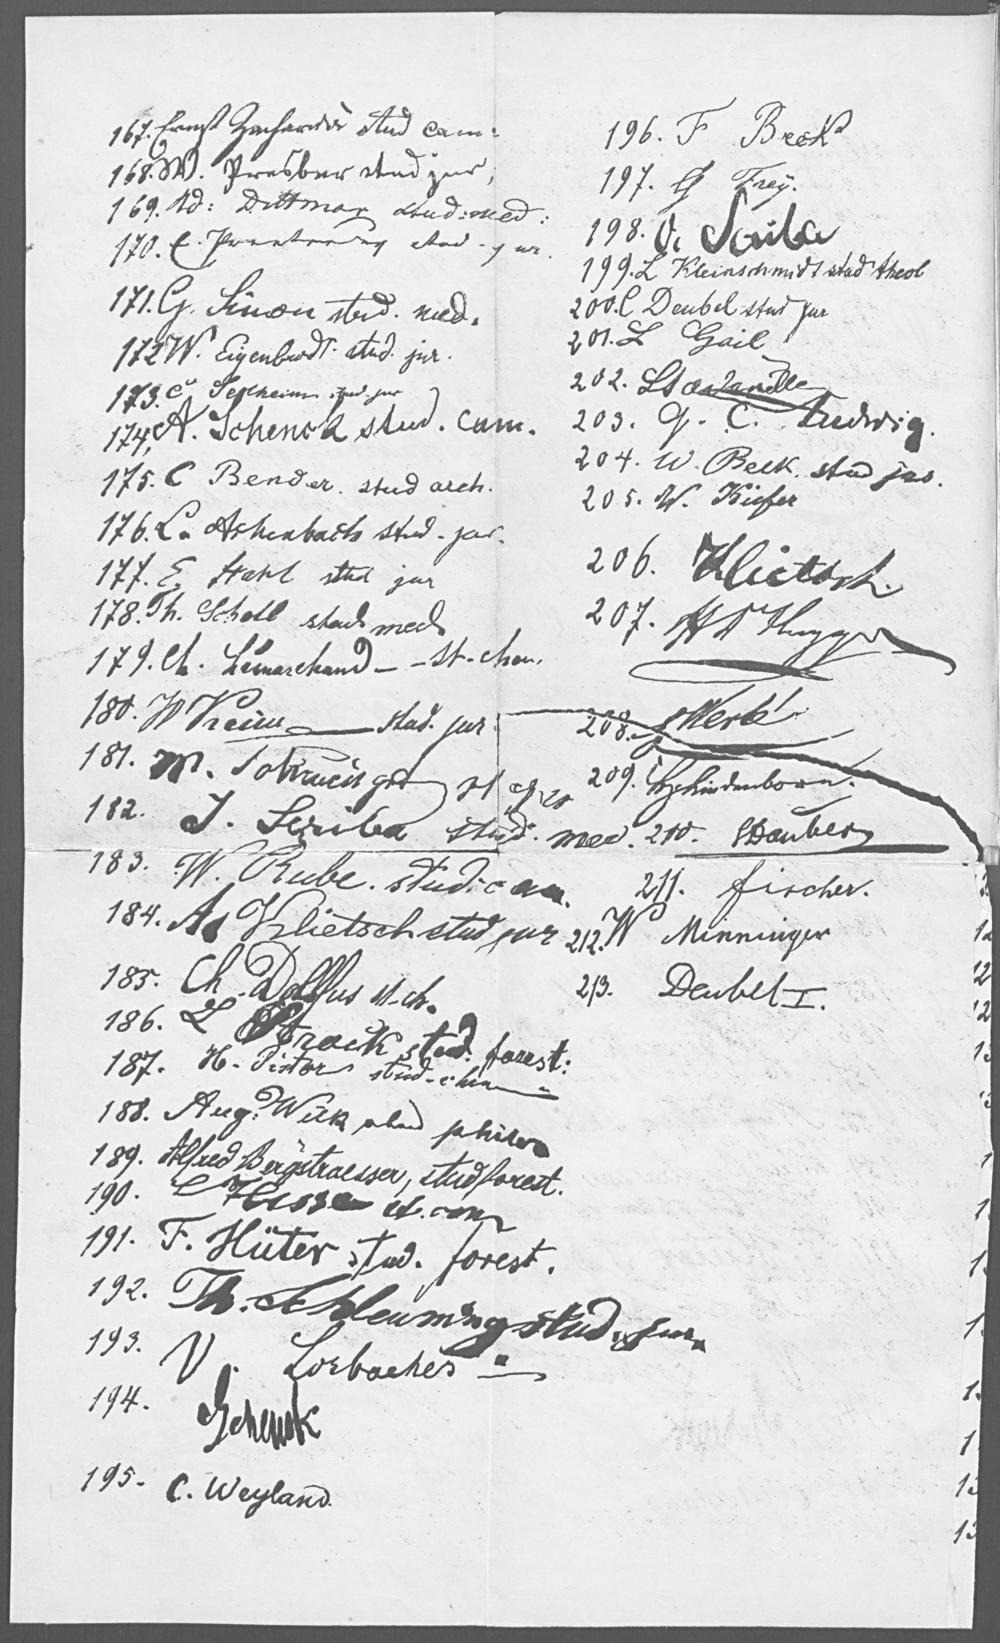 167. Ernst Zachariae stud cam:
168. W. Presber stud jur,
169. Ad: Dittmar stud: med:
170. C. stud. jur.
171. G. Simon stud. med.
172 W. Eigenbrodt. stud. jur.
173. C. stud. jur
174. A. Schenck stud. cam.
175. C Bender. stud arch.
176. L. Achenbach stud. jur.
177. E stud jur
178. Th. Scholl stud med
179. Ch. Lemarchand - st. chem.
180. W Keim stud. jur.
181. M. st
182. J. Scriba stud. med.
183. W. Rube. stud. cam.
184. Ad Klietsch stud jur
185. Ch. Dollfus st. ch.
186. L Strack stud. forest:
187. H. Pistor stud. chem
188. Aug. Weck stud philos
189. Alfred Bergstraesser, stud forest.
190. C Hesse st. cam
191. F. Hüter stud. forest.
192. Th. Schleuning stud. jur.
193. V. Lorbacher
194. Schenck
195. C. Weyland.
196. F Beck
197. G Frey.
198. V. Scriba
199. L Kleinschmidt stud theol
200. C Deubel stud jur
201. L Gail
202.
203. G. C. Ludwig.
204. W. Beck. stud jus.
205. W. Kiefer
206. Klietsch.
207.
208.
209.
210. Dauber
211. Fischer.
212. W Minninger
213. Deubel I.